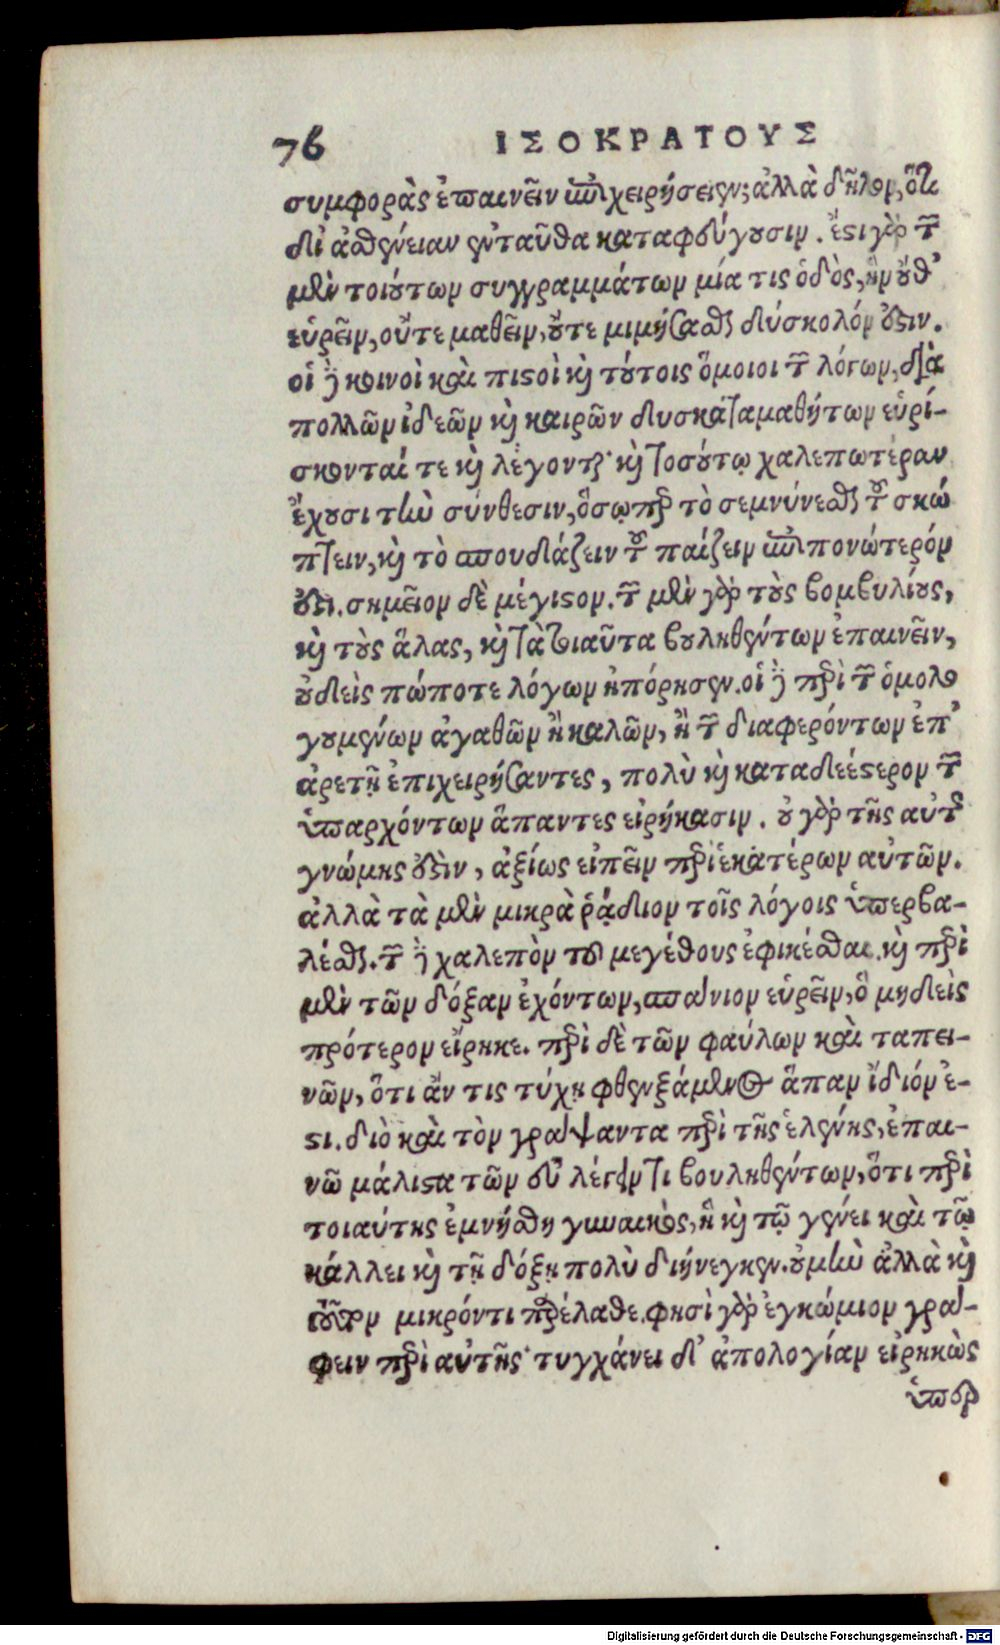 76 ΙΣΟΚΡΑΤΟΥΣ
συμφορὰς ἐπαινεῖν ἐπιχειρήσειεν; ἀλλὰ δῆλον, ὅτι
δι' ἀσθένειαν ἐνταῦθα καταφεύγουσιν. ἔστι γὰρ τῶν
μὲν τοιούτων συγγραμμάτων μία τις ὁδὸς, ἣν οὔθ'
εὑρεῖν, οὔτε μαθεῖν, οὔτε μιμήσασθαι δύσκολόν ἐστιν.
οἱ δὲ κοινοὶ καὶ πιστοὶ καὶ τούτοις ὅμοιοι τῶν λόγων, διὰ
πολλῶν ἰδεῶν καὶ καιρῶν δυσκαταμαθήτων εὑρί-
σκονταί τε καὶ λέγονται· καὶ τοσούτῳ χαλεπωτέραν
ἔχουσι τὴν σύνθεσιν, ὅσῳπερ τὸ σεμνύνεσθαι τοῦ σκώ
πτειν, καὶ τὸ σπουδάζειν τοῦ παίζειν ἐπιπονώτερόν
ἐστι. σημεῖον δὲ μέγιστον. τῶν μὲν γὰρ τοὺς βομβυλίους,
καὶ τοὺς ἅλας, καὶ τὰ τοιαῦτα βουληθέντων ἐπαινεῖν,
οὐδεὶς πώποτε λόγων ἠπόρησεν. οἱ δὲ περὶ τῶν ὁμολο
γουμένων ἀγαθῶν ἢ καλῶν, ἢ τῶν διαφερόντων ἐπ'
ἀρετῇ ἐπιχειρήσαντες, πολὺ καὶ καταδεέστερον τῶν
ὑπαρχόντων ἅπαντες εἰρήκασιν. οὐ γὰρ τῆς αὐτῆς
γνώμης ἐστὶν, ἀξίως εἰπεῖν περὶ ἑκατέρων αὐτῶν.
ἀλλὰ τὰ μὲν μικρὰ ῥᾴδιον τοῖς λόγοις ὑπερβα-
λέσθαι. τῶν δὲ χαλεπὸν τοῦ μεγέθους ἐφικέσθαι. καὶ περὶ
μὲν τῶν δόξαν ἐχόντων, σπάνιον εὑρεῖν, ὃ μηδεὶς
πρότερον εἴρηκε. περὶ δὲ τῶν φαύλων καὶ ταπει-
νῶν, ὅτι ἄν τις τύχῃ φθεγξάμενος ἅπαν ἴδιόν ἐ-
στι. διὸ καὶ τὸν γράψαντα περὶ τῆς ἑλένης, ἐπαι-
νῶ μάλιστα τῶν εὖ λέγειν τι βουληθέντων, ὅτι περὶ
τοιαύτης ἐμνήσθη γυναικὸς, ἣ καὶ τῷ γένει καὶ τῷ
κάλλει καὶ τῇ δόξῃ πολὺ διήνεγκεν. οὐ μὴν ἀλλὰ καὶ
τοῦτον μικρόν τι παρέλαθε. φησὶ γὰρ ἐγκώμιον γρά-
φειν περὶ αὐτῆς· τυγχάνει δ' ἀπολογίαν εἰρηκὼς
ὑπὲρ
Digitalisierung gefördert durch die Deutsche Forschungsgemeinschaft - DFG